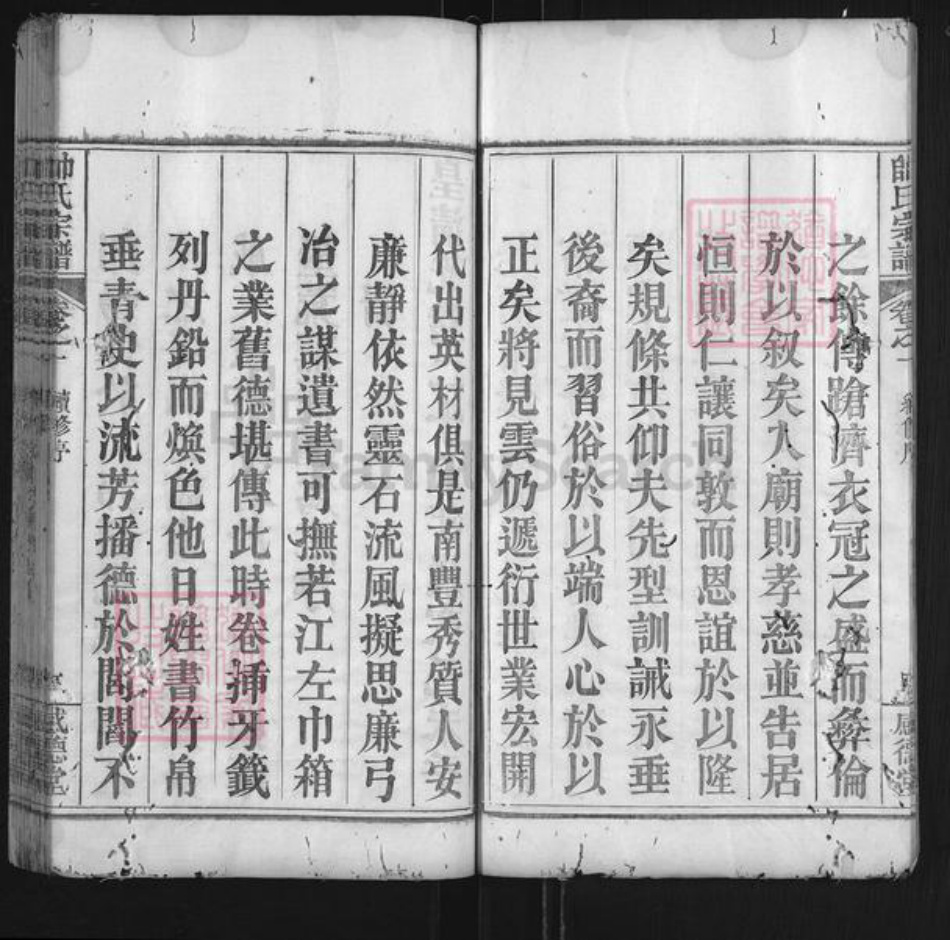 帥氏宗譜
卷之一
感德堂
之餘傳蹌濟衣冠之盛而彝倫
於以叙矣入廟則孝慈並吿居
恒則仁讓同敦而恩誼於以隆
矣規條共仰夫先型訓誡永垂
後裔而習俗於以端人心於以
正矣將見雲仍遞衍世業宏開
代出英材俱是南豐秀質人安
廉靜依然靈石流風擬思廉弓
冶之謀遺書可撫若江左巾箱
之業舊德堪傳此時卷揷牙籤
列丹鉛而煥色他日姓書竹帛
垂青史以流芳播德於閭閻不
帥氏宗譜
卷之一
續修序
感德堂
FamilySearch